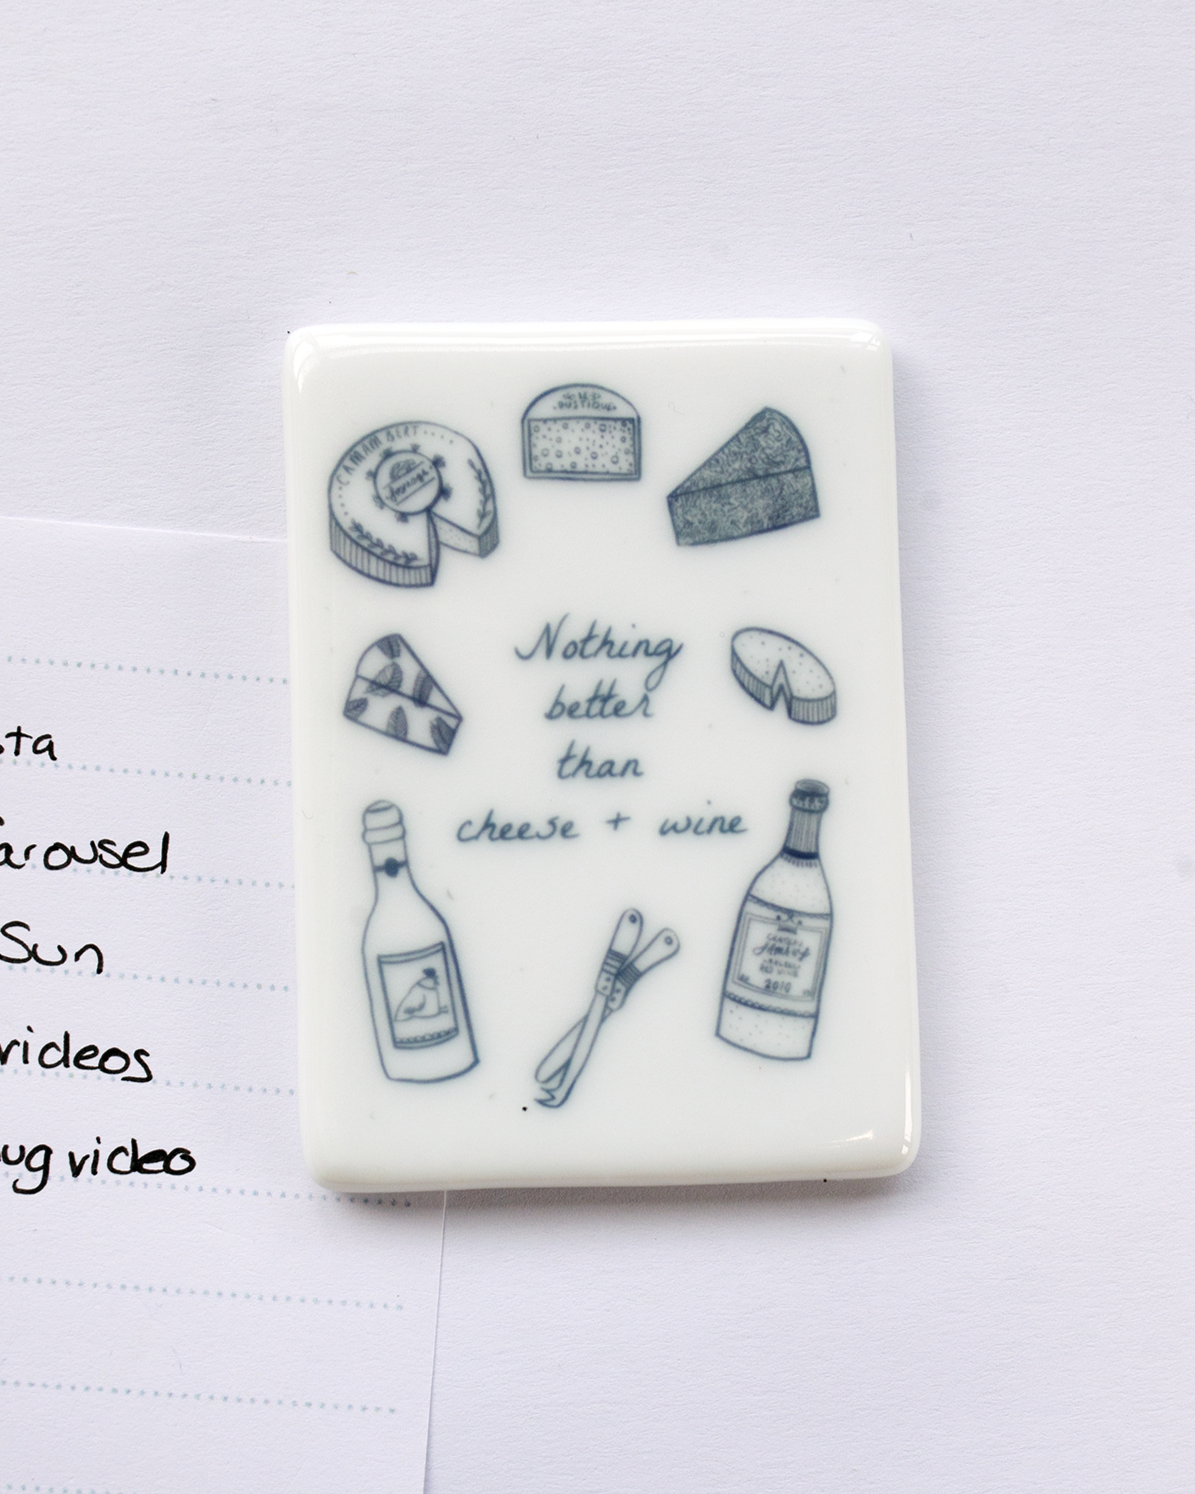 CAMAMBLET
RUSTIQUE
Nothing
better
than
cheese + wine
RED WINE
2010
sta
arousel
Sun
videos
ug video